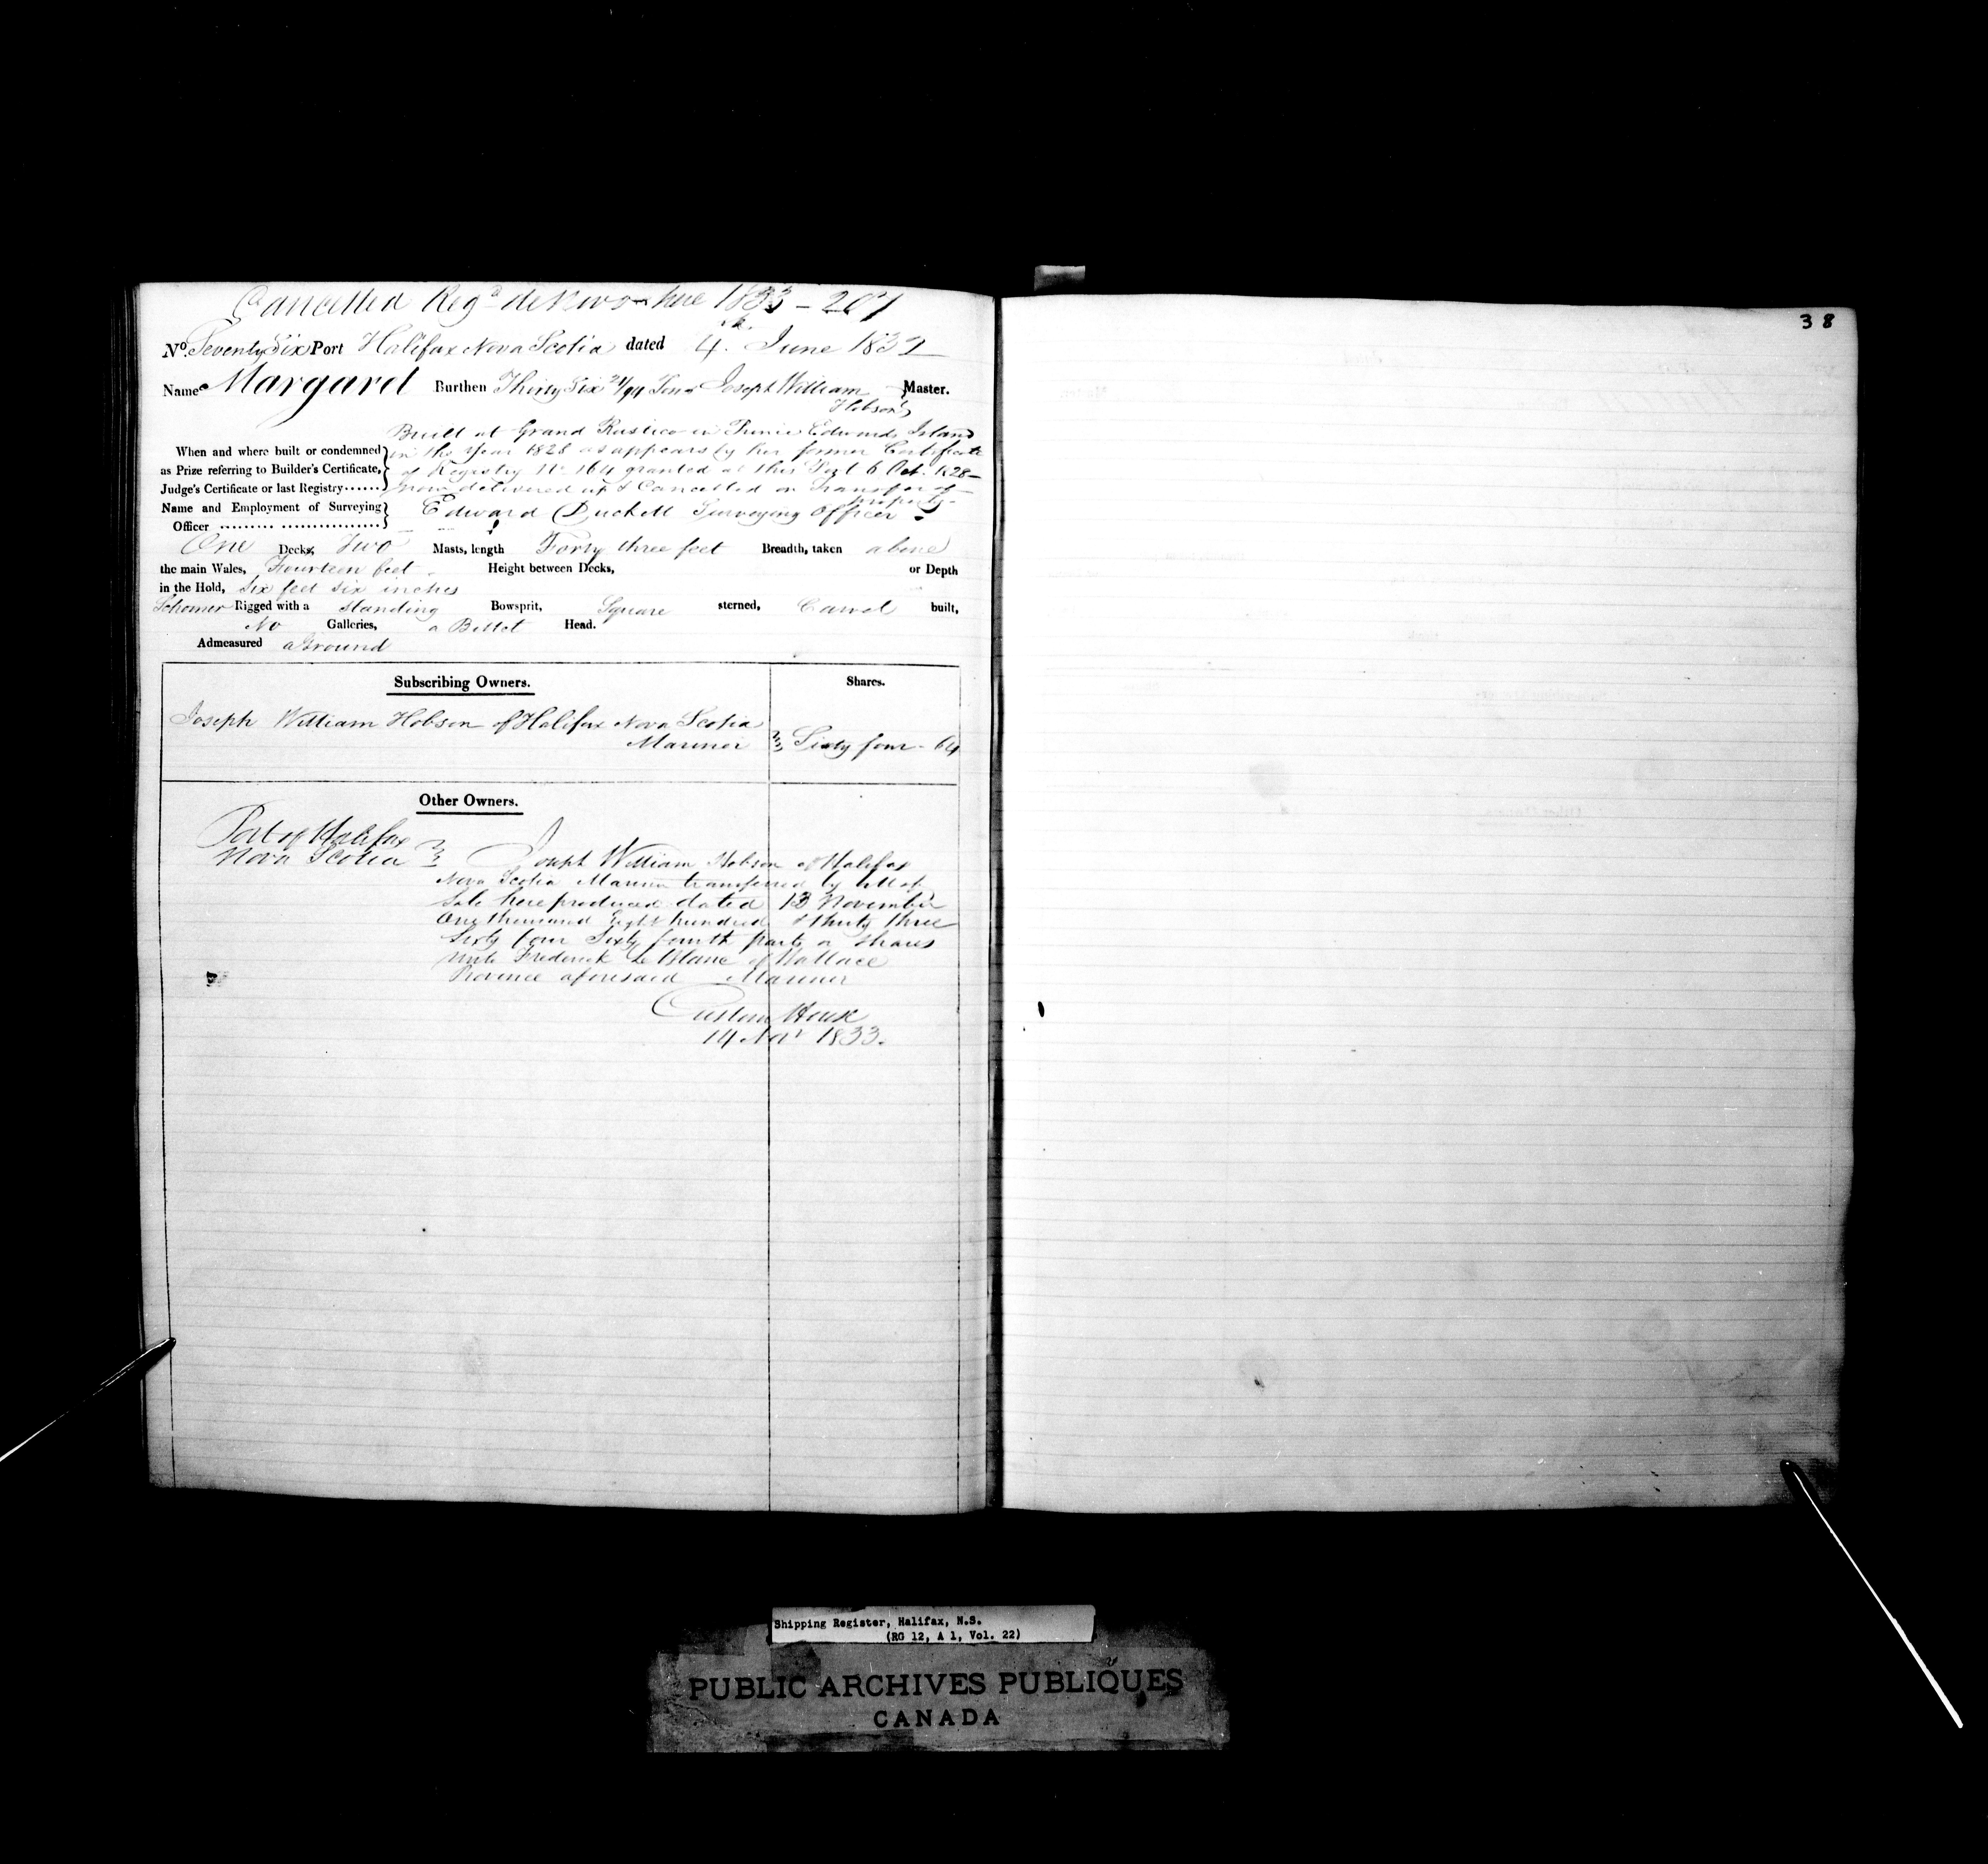 Cancelled Reg^d de Novo here 1833 - 201
No. Seventy Six Port Halifax Nova Scotia dated 4th June 1832
Name Margard Burthen Thirty Six 21/94 Tons Joseph William Hobson Master.
Built at Grand Rustico in Prince Edwards Island
When and where built or condemned in the Year 1828 as appears by her former Certificate
as Prize referring to Builder's Certificate, of Registry No 164 granted at this Port 6 Oct. 1828
Judge's Certificate or last Registry...... now delivered up & Cancelled on Transfer of property
Name and Employment of Surveying Edward Duckett Surveying Officer
Officer
One Decks, Two Masts, length Forty three feet Breadth, taken above
the main Wales, Fourteen feet Height between Decks, or Depth
in the Hold, Six feet six inches
Schooner Rigged with a standing Bowsprit, Square sterned, Carvel built,
No Galleries, a Billet Head.
Admeasured aGround
Subscribing Owners. Shares.
Joseph William Hobson of Halifax Nova Scotia
Mariner Sixty four - 64
Other Owners.
Port of Halifax
Nova Scotia
Joseph William Hobson of Halifax
Nova Scotia Mariner transferred by Bill of
Sale here produced dated 13 November
One thousand Eight hundred & thirty three
Sixty four Sixty fourth parts or shares
unto Frederick Le Blanc of Wallace
Province aforesaid Mariner
Custom House
14 Nov^r 1833.
38
Shipping Register, Halifax, N.S.
(RG 12, A 1, Vol. 22)
PUBLIC ARCHIVES PUBLIQUES
CANADA